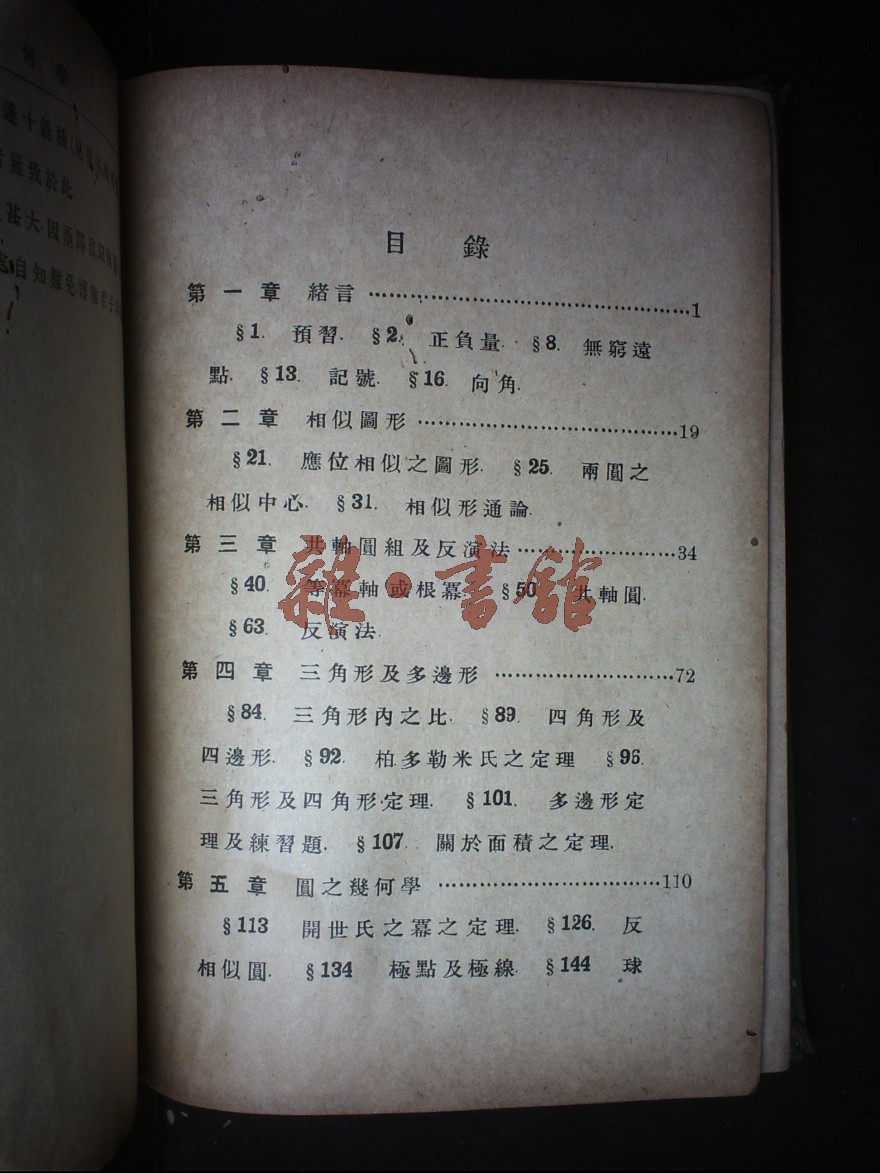 何學
達十餘種
者羅致於此
甚大因亟譯
自知難免
目錄
第一章 緒言……1
§1. 預習. §2. 正負量. §8. 無窮遠
點. §13. 記號. §16. 向角.
第二章 相似圖形……19
§21. 應位相似之圖形. §25. 兩圓之
相似中心. §31. 相似形通論.
第三章 共軸圓組及反演法……34
§40. 等冪軸或根冪 §50 共軸圓.
§63. 反演法.
第四章 三角形及多邊形……72
§84. 三角形內之比. §89. 四角形及
四邊形. §92. 柏多勒米氏之定理 §96.
三角形及四角形定理. §101. 多邊形定
理及練習題. §107. 關於面積之定理.
第五章 圓之幾何學……110
§113 開世氏之冪之定理. §126. 反
相似圓. §134 極點及極線. §144 球
雜·書館